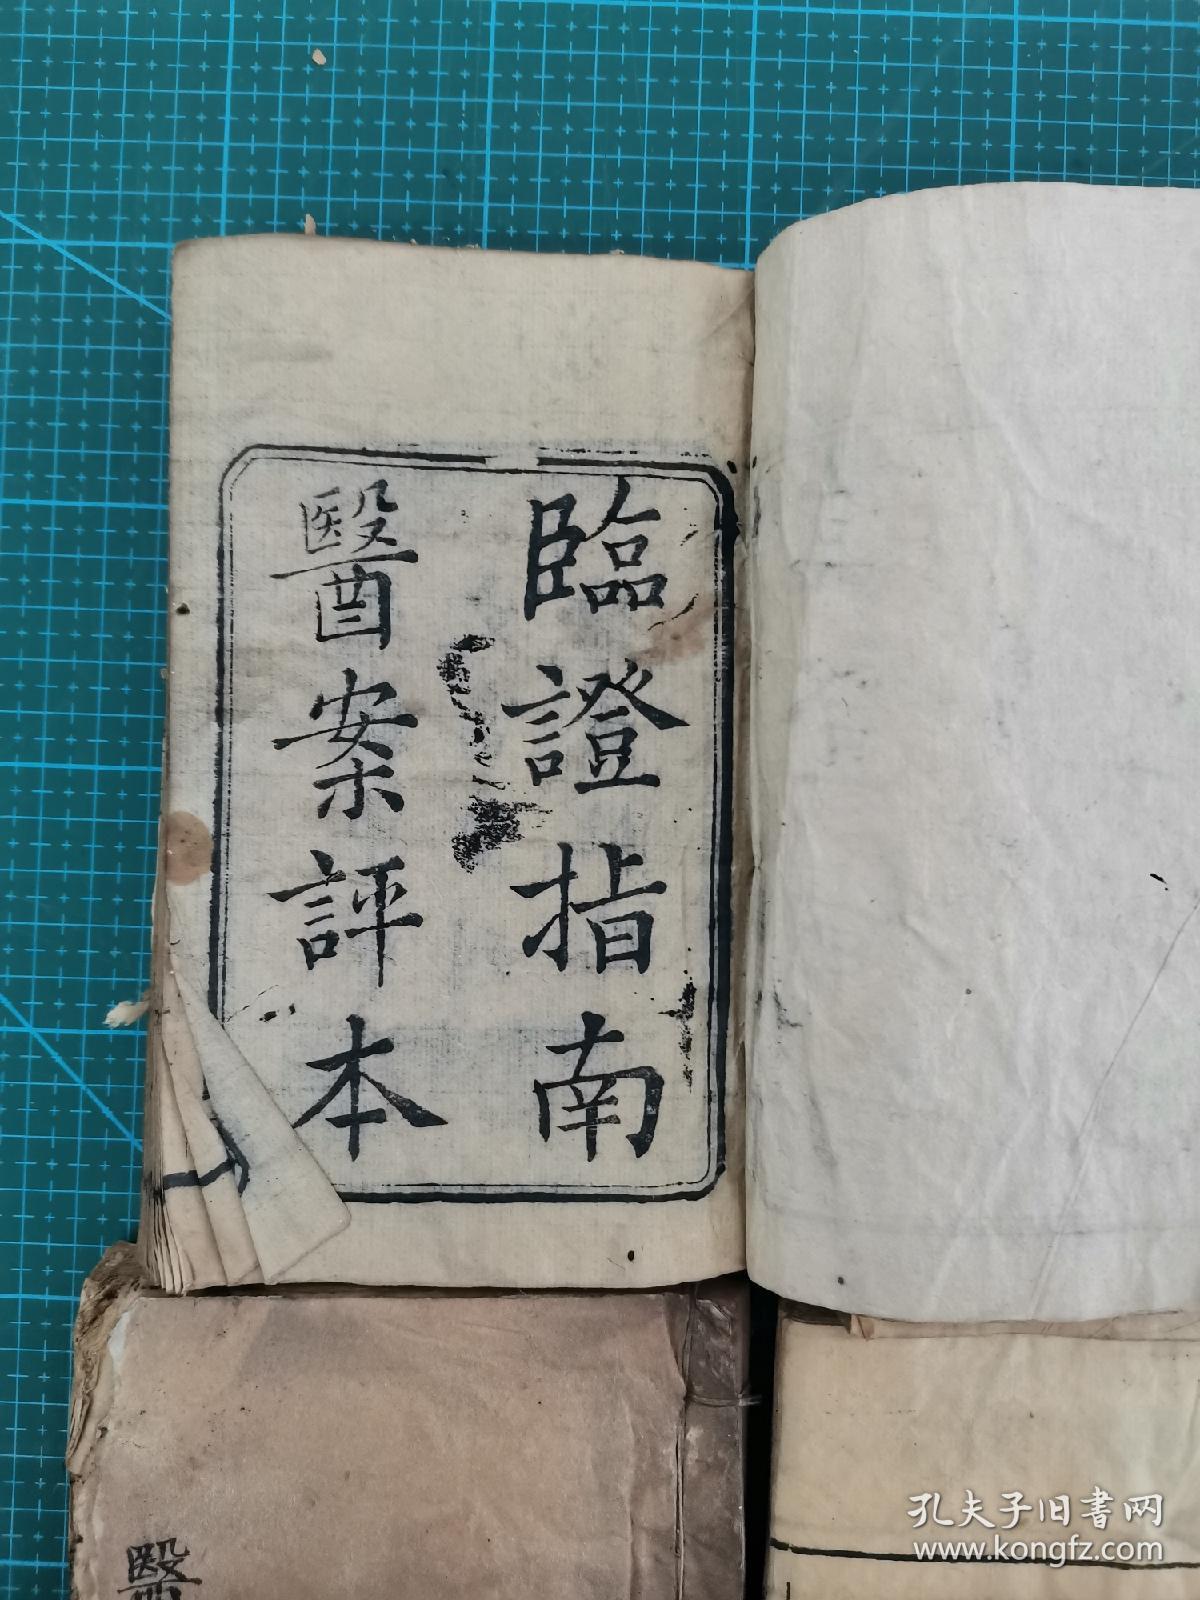 臨證指南
醫案評本
醫
孔夫子旧書网
www.kongfz.com